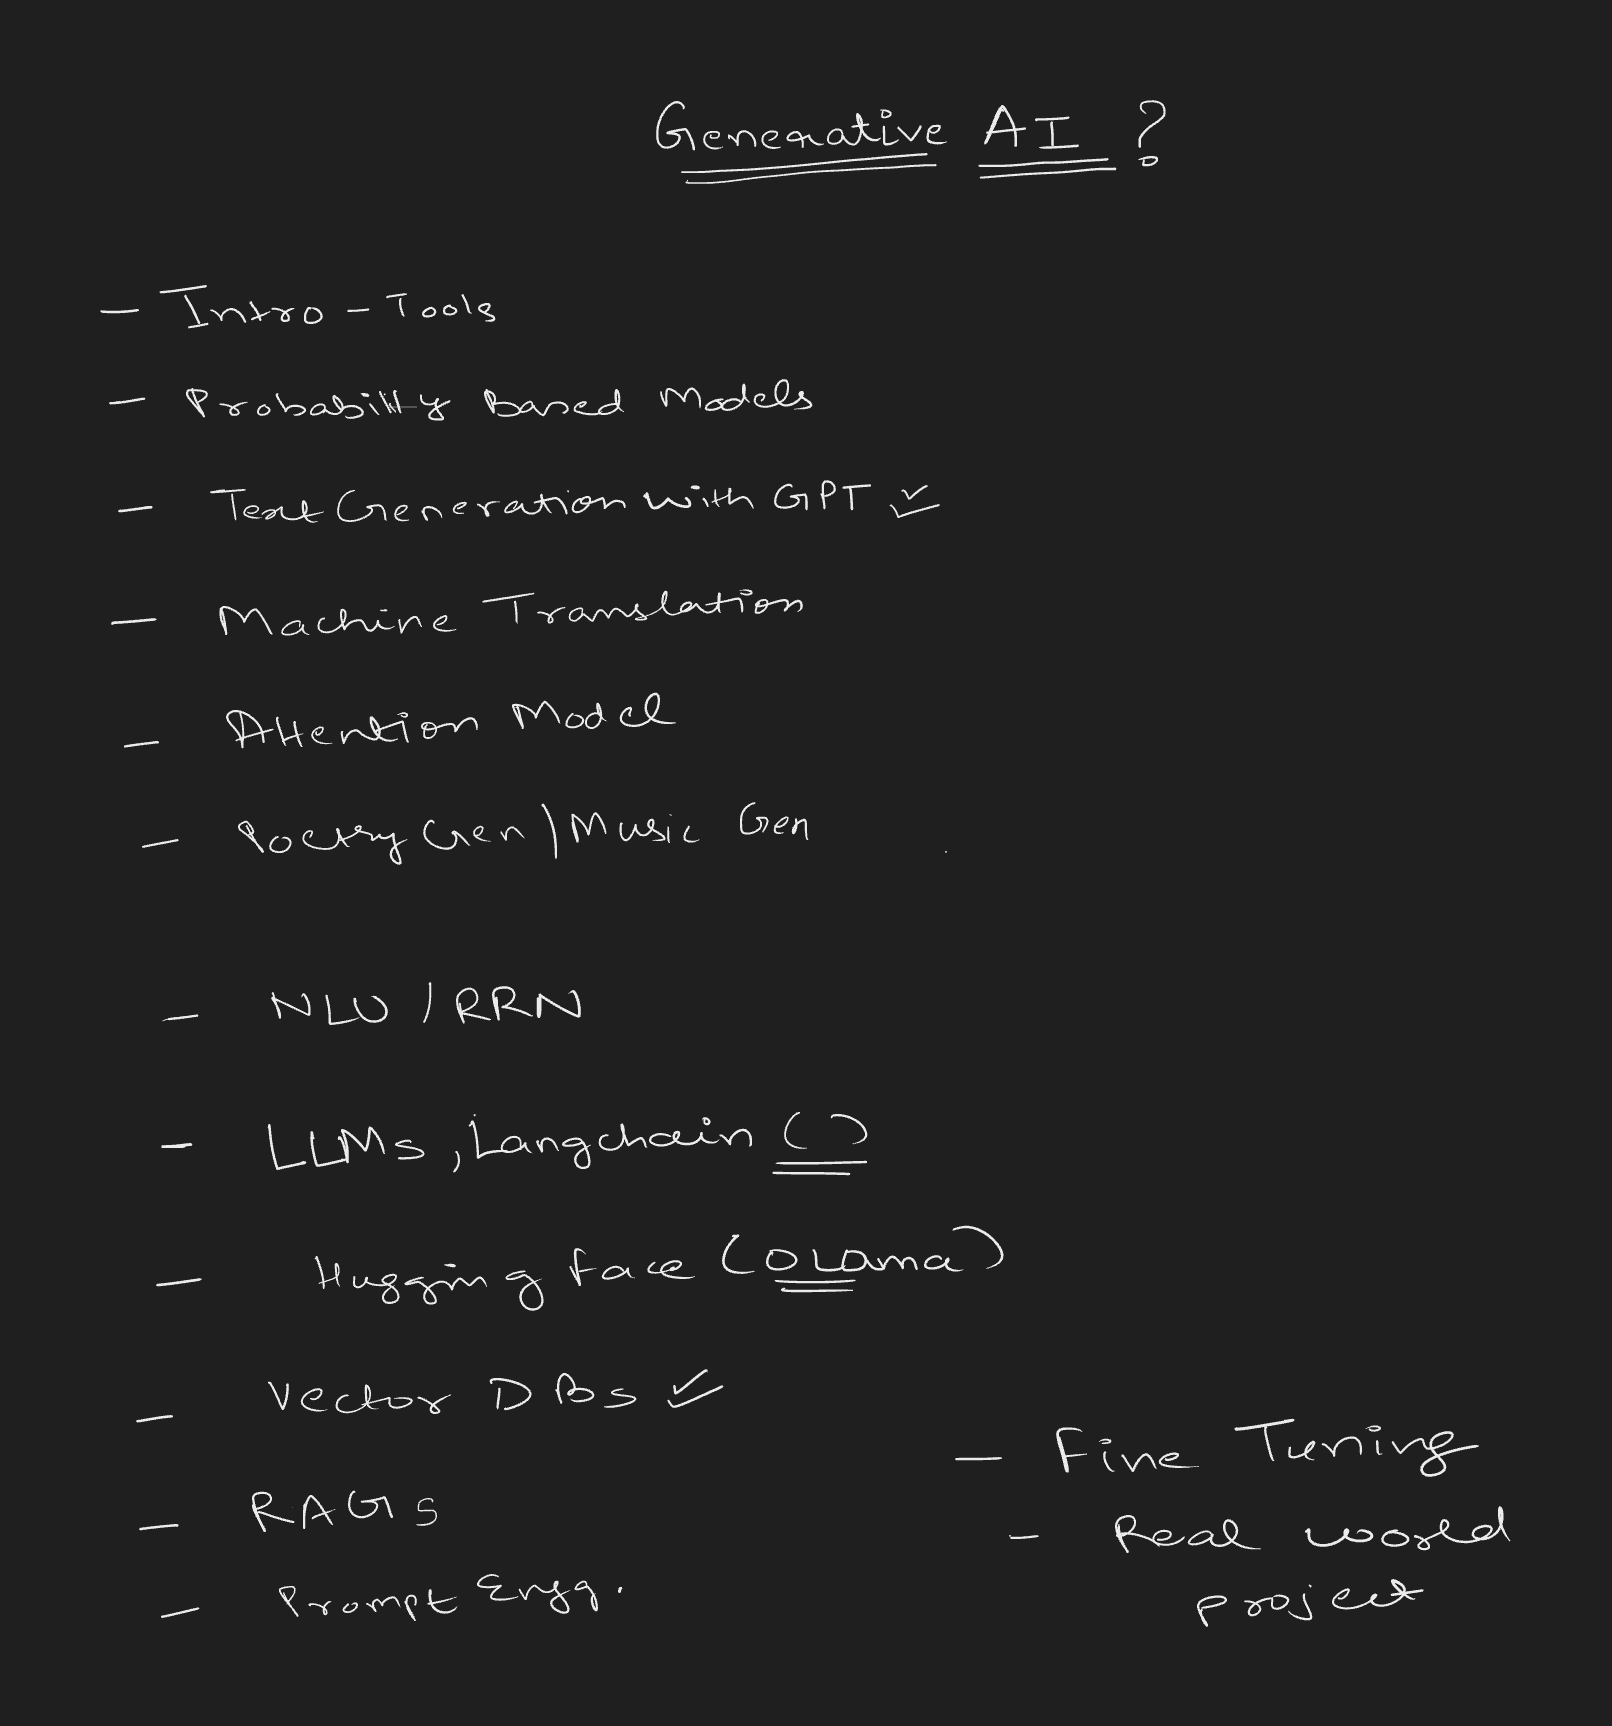 Generative AI ?
- Intro - Tools
- Probability Based Models
- Text Generation with GPT ✓
- Machine Translation
- Attention Model
- Poetry Gen / Music Gen
- NLU / RRN
- LLMs, Langchain ()
- Hugging face (OLama)
- Vector DBs ✓
- RAGs
- Prompt Engg.
- Fine Tuning
- Real world
project